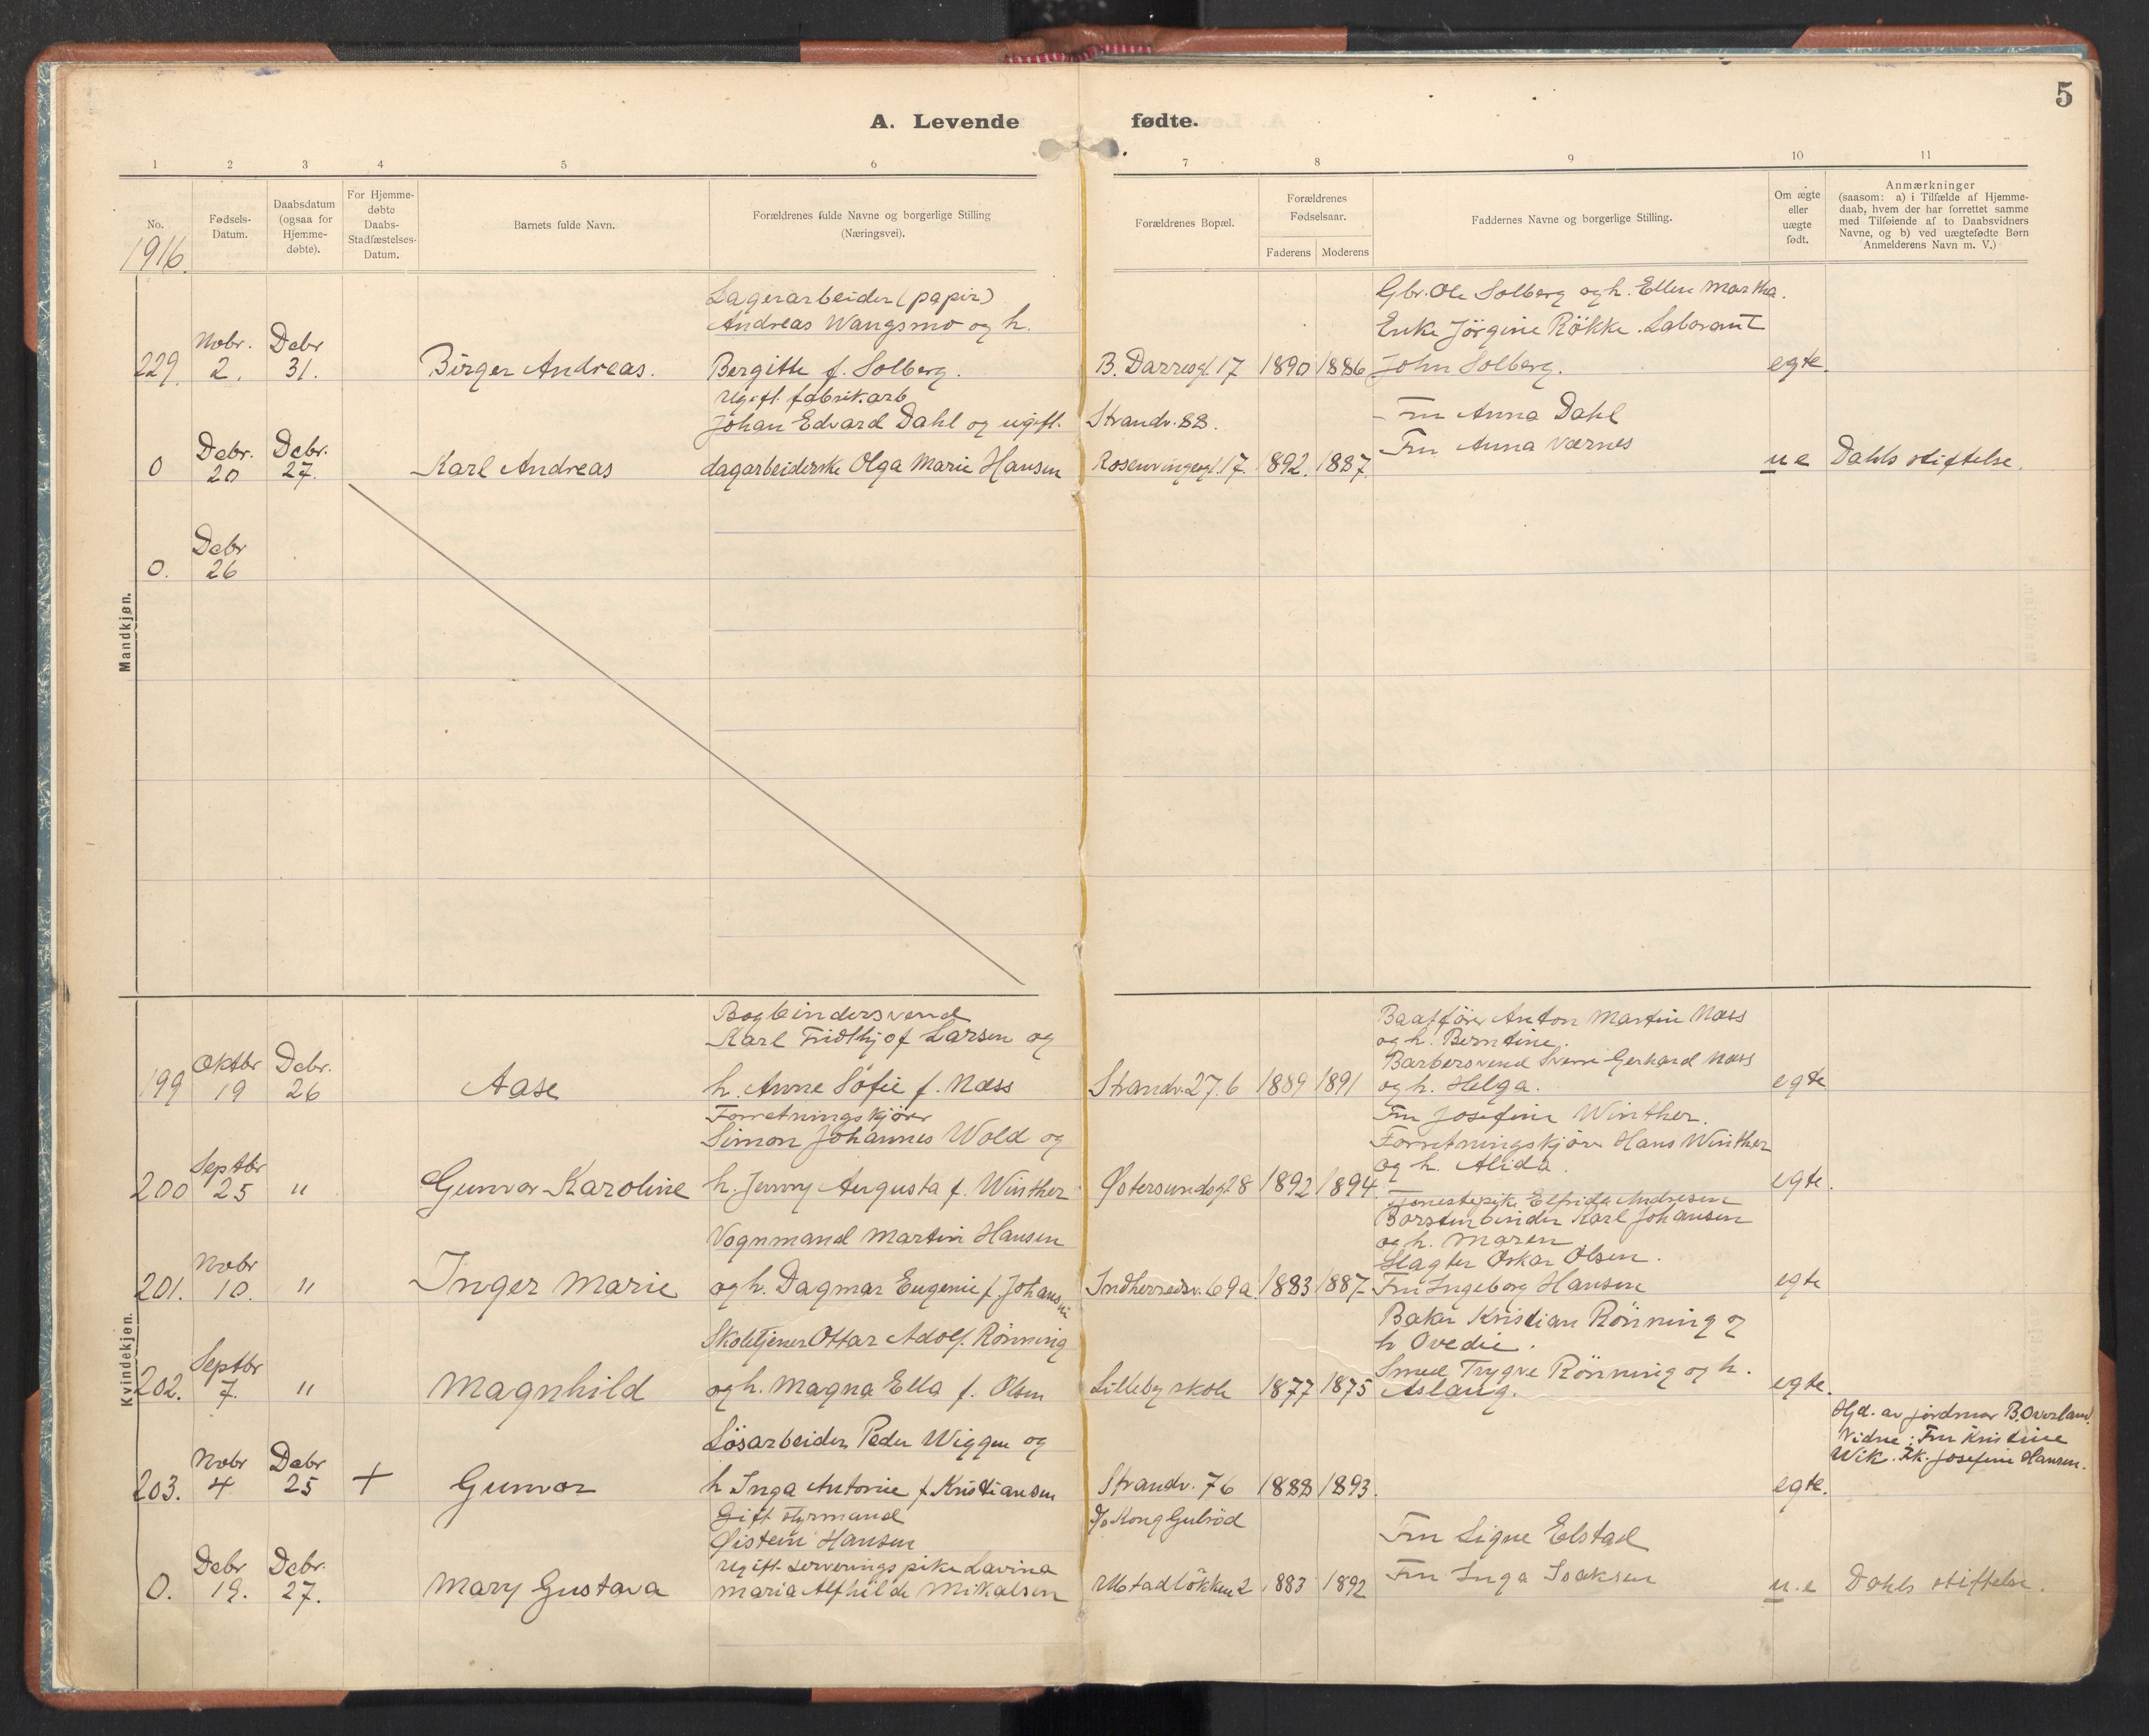 5
A. Levende fødte.
1 2 3 4 5 6 7 8 9 10 11
No.
Fødsels-
Datum.
Daabsdatum
(ogsaa for
Hjemme-
døbte).
For Hjemme-
døbte
Daabs-
Stadfæstelses-
Datum.
Barnets fulde Navn.
Forældrenes fulde Navne og borgerlige Stilling
(Næringsvei).
Forældrenes Bopæl.
Forældrenes
Fødselsaar.
Faderens Moderens
Faddernes Navne og borgerlige Stilling.
Om ægte
eller
uægte
født.
Anmærkninger
(saasom: a) i Tilfælde af Hjemme-
daab, hvem der har forrettet samme
med Tilføiende af to Daabsvidners
Navne, og b) ved uægtefødte Børn
Anmelderens Navn m. V.)
1916.
Mandkjøn.
229.
Nobr.
2.
Debr
31.
Birger Andreas.
Lagerarbeider (papir)
Andreas Wangsmo og h.
Bergitte f. Solberg.
B. Darresgt. 17
1890 1886
Gbr. Ole Solberg og h. Ellen Martha.
Enke Jörgine Rökke. Laborant
John Solberg.
egte.
0
Debr.
20
Debr.
27.
Karl Andreas
Ugift. fabrikarb
Johan Edvard Dahl og ugift.
dagarbeiderske Olga Marie Hansen
Strandv. 88.
Rosenvingesgt. 17.
1892. 1887.
Fru Anna Dahl
Fru Anna Værnes
u e
Dahls stiftelse.
0.
Debr
26
Kvindekjøn.
199
Oktbr
19
Debr.
26
Aase
Bogbindersvend
Karl Fridthjof Larsen og
h. Anne Sofie f. Næss
Strandv. 27.b
1889 1891
Baatfører Anton Martin Næss
og h. Berntine.
Barbersvend Sverre Gerhard Næss
og h. Helga.
egte
200
Septbr
25
"
Gunvor Karoline
Forretningskjører
Simon Johannes Wold og
h. Jenny Augusta f. Winther
Østersundsgt 8
1892 1894.
Fru Josefine Winther.
Forretningskjører Hans Winther
og h. Alida.
Tjenestepike Elfrida Andresen
egte.
201.
Nobr
10.
"
Inger Marie
Vognmand Martin Hansen
og h. Dagmar Eugenie f. Johansen
Indherredsv. 69a.
1883 1887
Börstenbinder Karl Johansen
og h. Maren
Slagter Oskar Olsen.
Fru Ingeborg Hansen
egte
202.
Septbr
7.
"
Magnhild
Skoletjener Ottar Adolf Rönning
og h. Magna Ella f. Olsen
Lilleby skole
1877 1875
Baker Kristian Rönning og
h Ovedie.
Smed Trygve Rönning og h.
Aslaug.
egte.
203.
Nobr
4
Debr
25
+
Gunvor
Lösarbeider Peder Wiggen og
h Inga Antonie f. Kristiansen
Strandv. 76
1888 1893.
egte.
Hjd. av jordmor B. Overland.
Vidne: Fru Kristine
Wik. Frk. Josefine Hansen.
0.
Debr
19.
Debr.
27.
Mary Gustava
Gift Styrmand
Øistein Hansen
Ugift. serveringspike Lavina
Maria Alfhilde Mikalsen
D/s Kong Gulröd
Ulstadlökken 2
1883 1892
Fru Signe Elstad
Fru Inga Isaksen
u. e
Dahls stiftelse.